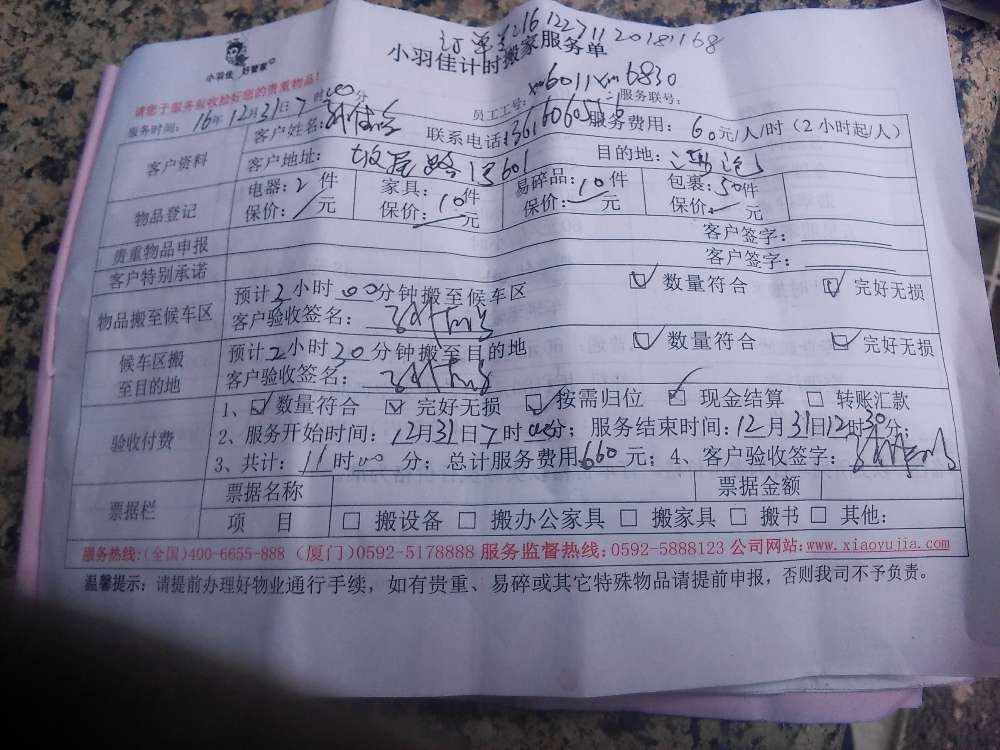 订单号216122711 20181168
小羽佳 好管家
小羽佳计时搬家服务单
请您于服务验收检好您的贵重物品!
xm6011 xm6830
服务时间: 16年12月31日7时00分 员工工号: 服务联号:
客户资料 客户姓名: 联系电话: 服务费用: 60元/人/时 (2小时起/人)
客户地址: 目的地:
物品登记 电器: 2件 家具: 10件 易碎品: 10件 包裹: 50件
保价: 元 保价: 元 保价: 元 保价: 元
贵重物品申报 客户签字:
客户特别承诺 客户签字:
物品搬至候车区 预计2小时00分钟搬至候车区 ☑ 数量符合 ☑ 完好无损
客户验收签名:
候车区搬至目的地 预计2小时30分钟搬至目的地 ☑ 数量符合 ☑ 完好无损
客户验收签名:
验收付费 1、☑ 数量符合 ☑ 完好无损 ☑ 按需归位 ☑ 现金结算 □ 转账汇款
2、服务开始时间: 12月31日7时00分; 服务结束时间: 12月31日12时30分;
3、共计: 11时00分; 总计服务费用660元; 4、客户验收签字:
票据栏 票据名称 票据金额
项 目 □ 搬设备 □ 搬办公家具 □ 搬家具 □ 搬书 □ 其他:
服务热线:(全国)400-6655-888 (厦门)0592-5178888 服务监督热线:0592-5888123 公司网站:www.xiaoyujia.com
温馨提示: 请提前办理好物业通行手续, 如有贵重、易碎或其它特殊物品请提前申报, 否则我司不予负责。